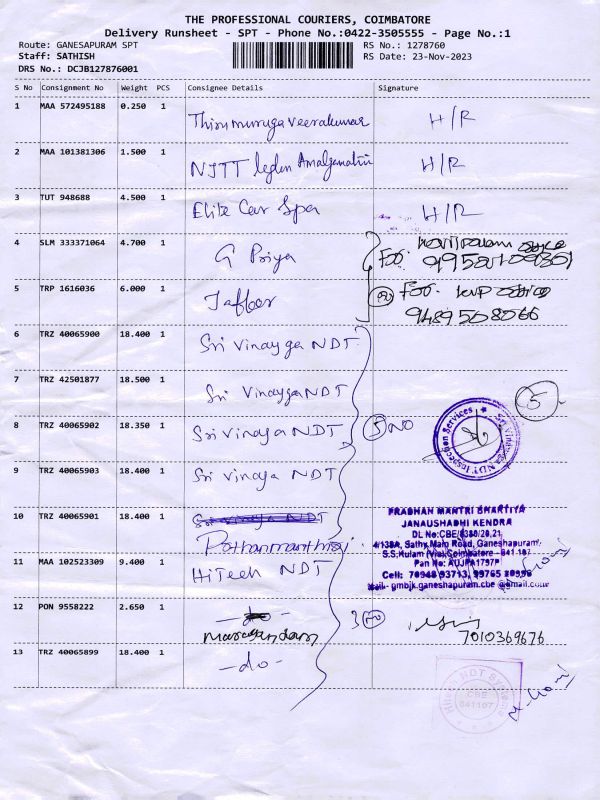 THE PROFESSIONAL COURIERS, COIMBATORE
Delivery Runsheet - SPT - Phone No.:0422-3505555 - Page No.:1
Route: GANESAPURAM SPT
RS No.: 1278760
Staff: SATHISH
RS Date: 23-Nov-2023
DRS No.: DCJB127876001
S No Consignment No Weight PCS Consignee Details Signature
1 MAA 572495188 0.250 1 Thirumurugaveerakumar H/R
2 MAA 101381306 1.500 1 H/R
3 TUT 948688 4.500 1 Elite Car Spa H/R
4 SLM 333371064 4.700 1 G Priya
5 TRP 1616036 6.000 1 Jaffer
9489568066
6 TRZ 40065900 18.400 1 Sri Vinayga NDT
7 TRZ 42501877 18.500 1 Sri Vinayga NDT
5
8 TRZ 40065902 18.350 1 Sri Vinaya NDT 5 NO
Sri Vinayaga NDT Inspection Services
9 TRZ 40065903 18.400 1 Sri Vinaya NDT
10 TRZ 40065901 18.400 1 Sri Vinaya NDT
PRADHAN MANTRI BHARTIYA
JANAUSHADHI KENDRA
DL No:CBE/6380/20,21
4/138A, Sathy Main Road, Ganeshapuram,
S.S.Kulam (Via), Coimbatore - 641 107
Pan No: AUJPA1797P
Cell: 70948 93713, 99765 20996
Mail- pmbjk.ganeshapuram.cbe @gmail.com
11 MAA 102523309 9.400 1 HiTech NDT
12 PON 9558222 2.650 1 -do-
7010369676
13 TRZ 40065899 18.400 1 -do-
CBE
641107